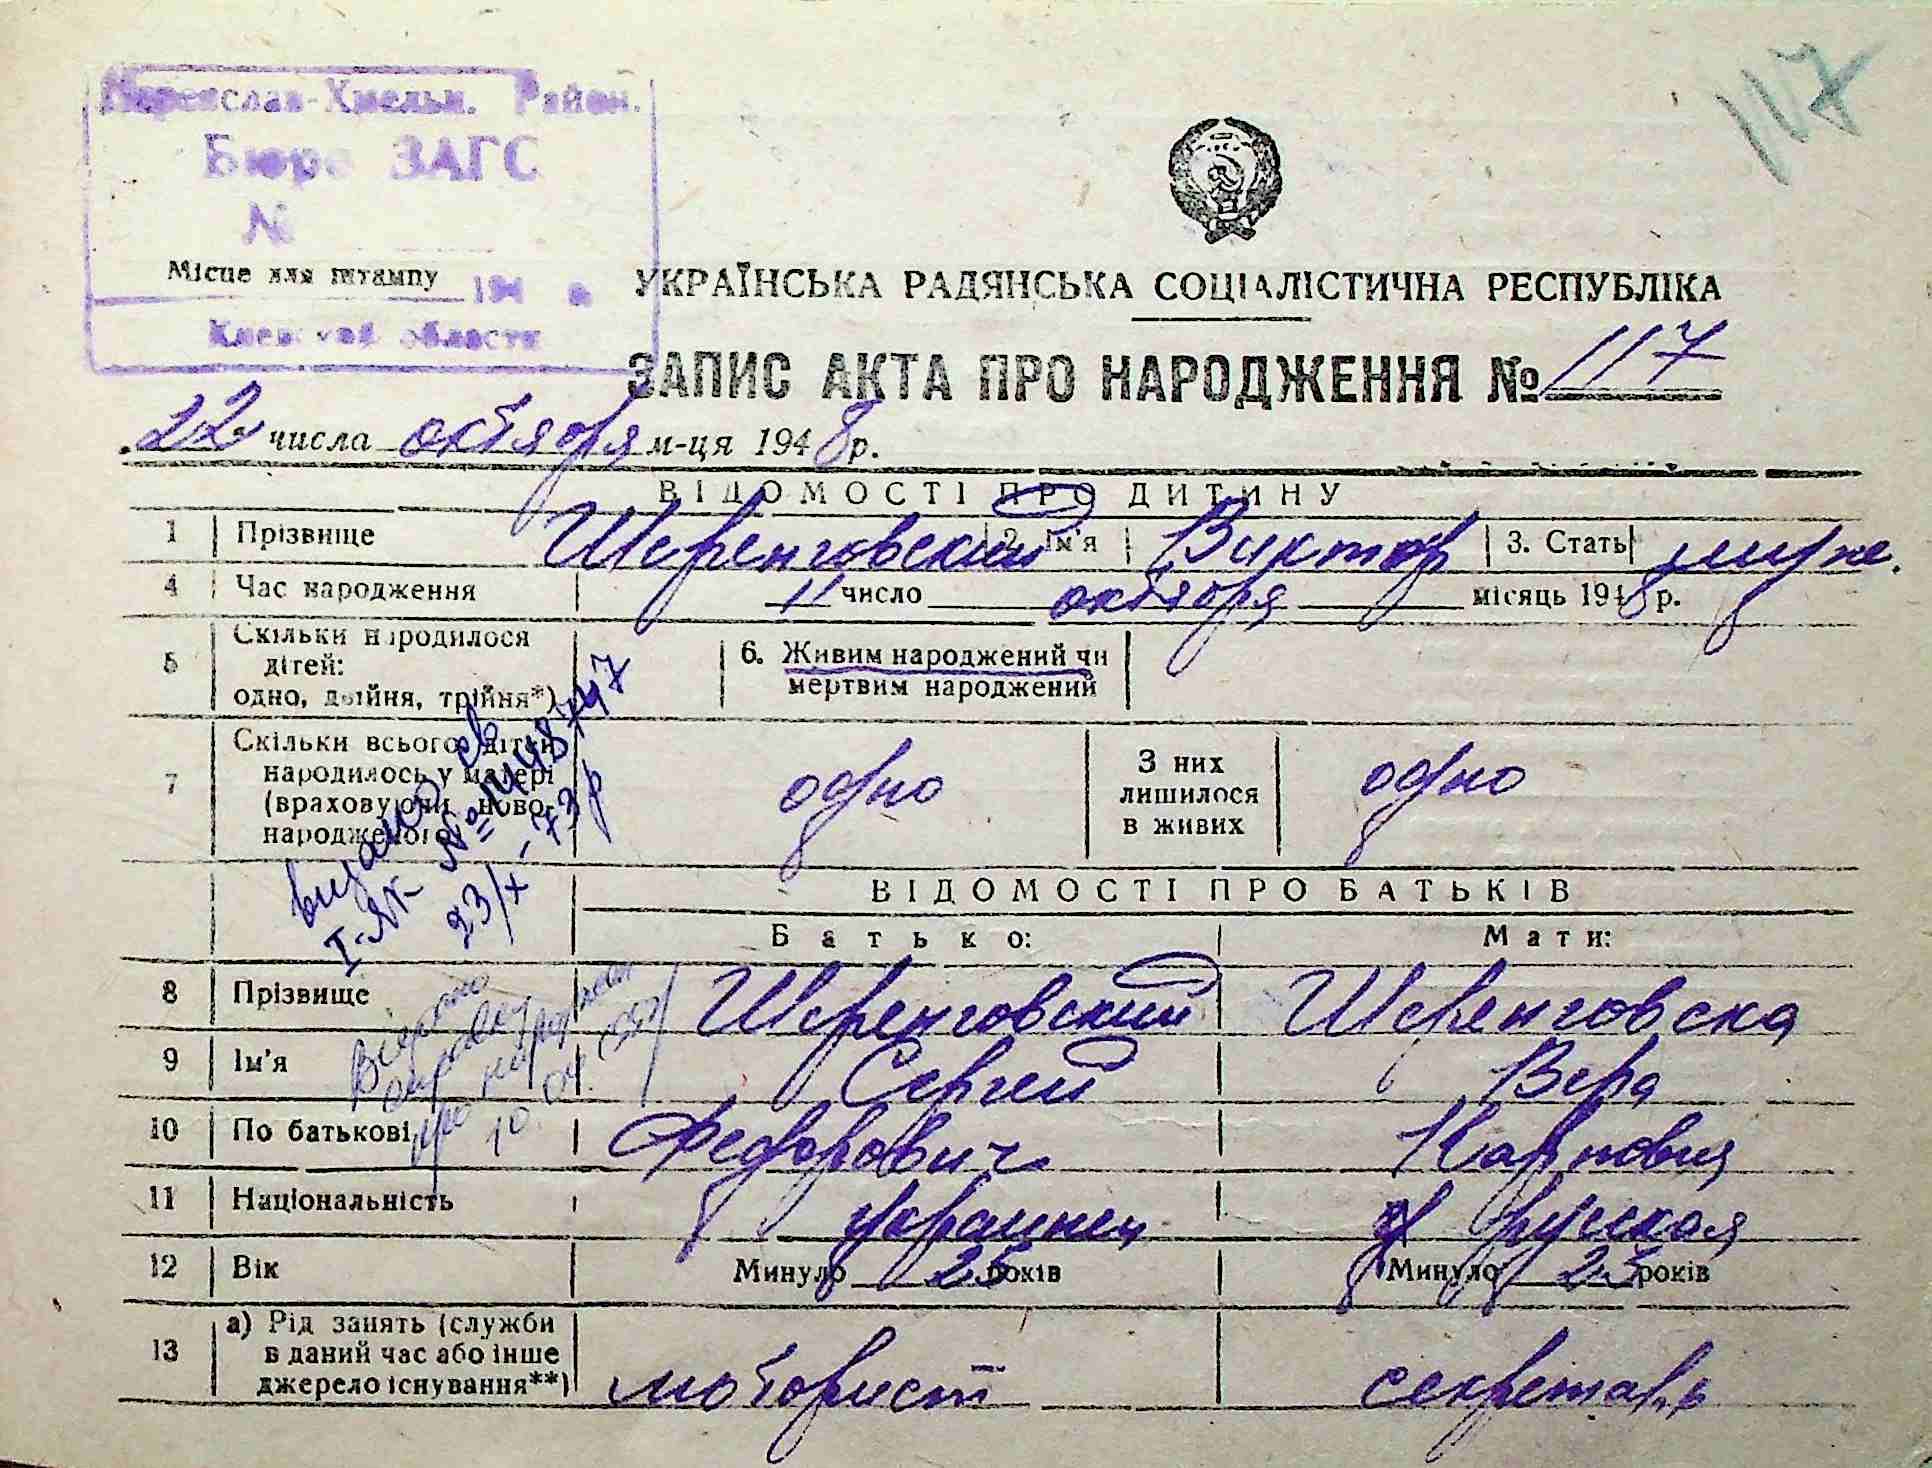 117
Переяслав-Хмельн. Район.
Бюро ЗАГС
№
Місце для штампу 194 г.
Киевской области
УКРАЇНСЬКА РАДЯНСЬКА СОЦІАЛІСТИЧНА РЕСПУБЛІКА
ЗАПИС АКТА ПРО НАРОДЖЕННЯ № 117
22 числа октября м-ця 1948 р.
ВІДОМОСТІ ПРО ДИТИНУ
1 Прізвище Шеренговский 2. Ім'я Виктор 3. Стать муж.
4 Час народження 11 число октября місяць 1948 р.
5 Скільки народилося дітей: одно, двійня, трійня*) 6. Живим народжений чи мертвим народжений
7 Скільки всього дітей народилось у матері (враховуючи новонародженого) одно З них лишилося в живих одно
видано св.
І-ЯК № 4487747
23/X-73р
ВІДОМОСТІ ПРО БАТЬКІВ
Батько: Мати:
8 Прізвище Шеренговский Шеренговска
9 Ім'я Сергей Вера
10 По батькові Федорович Карповна
11 Національність украинец русская
12 Вік Минуло 25 років Минуло 23 років
Видано
довідку
про народження
10.04.
13 а) Рід занять (служби в даний час або інше джерело існування**) моторист секретарь